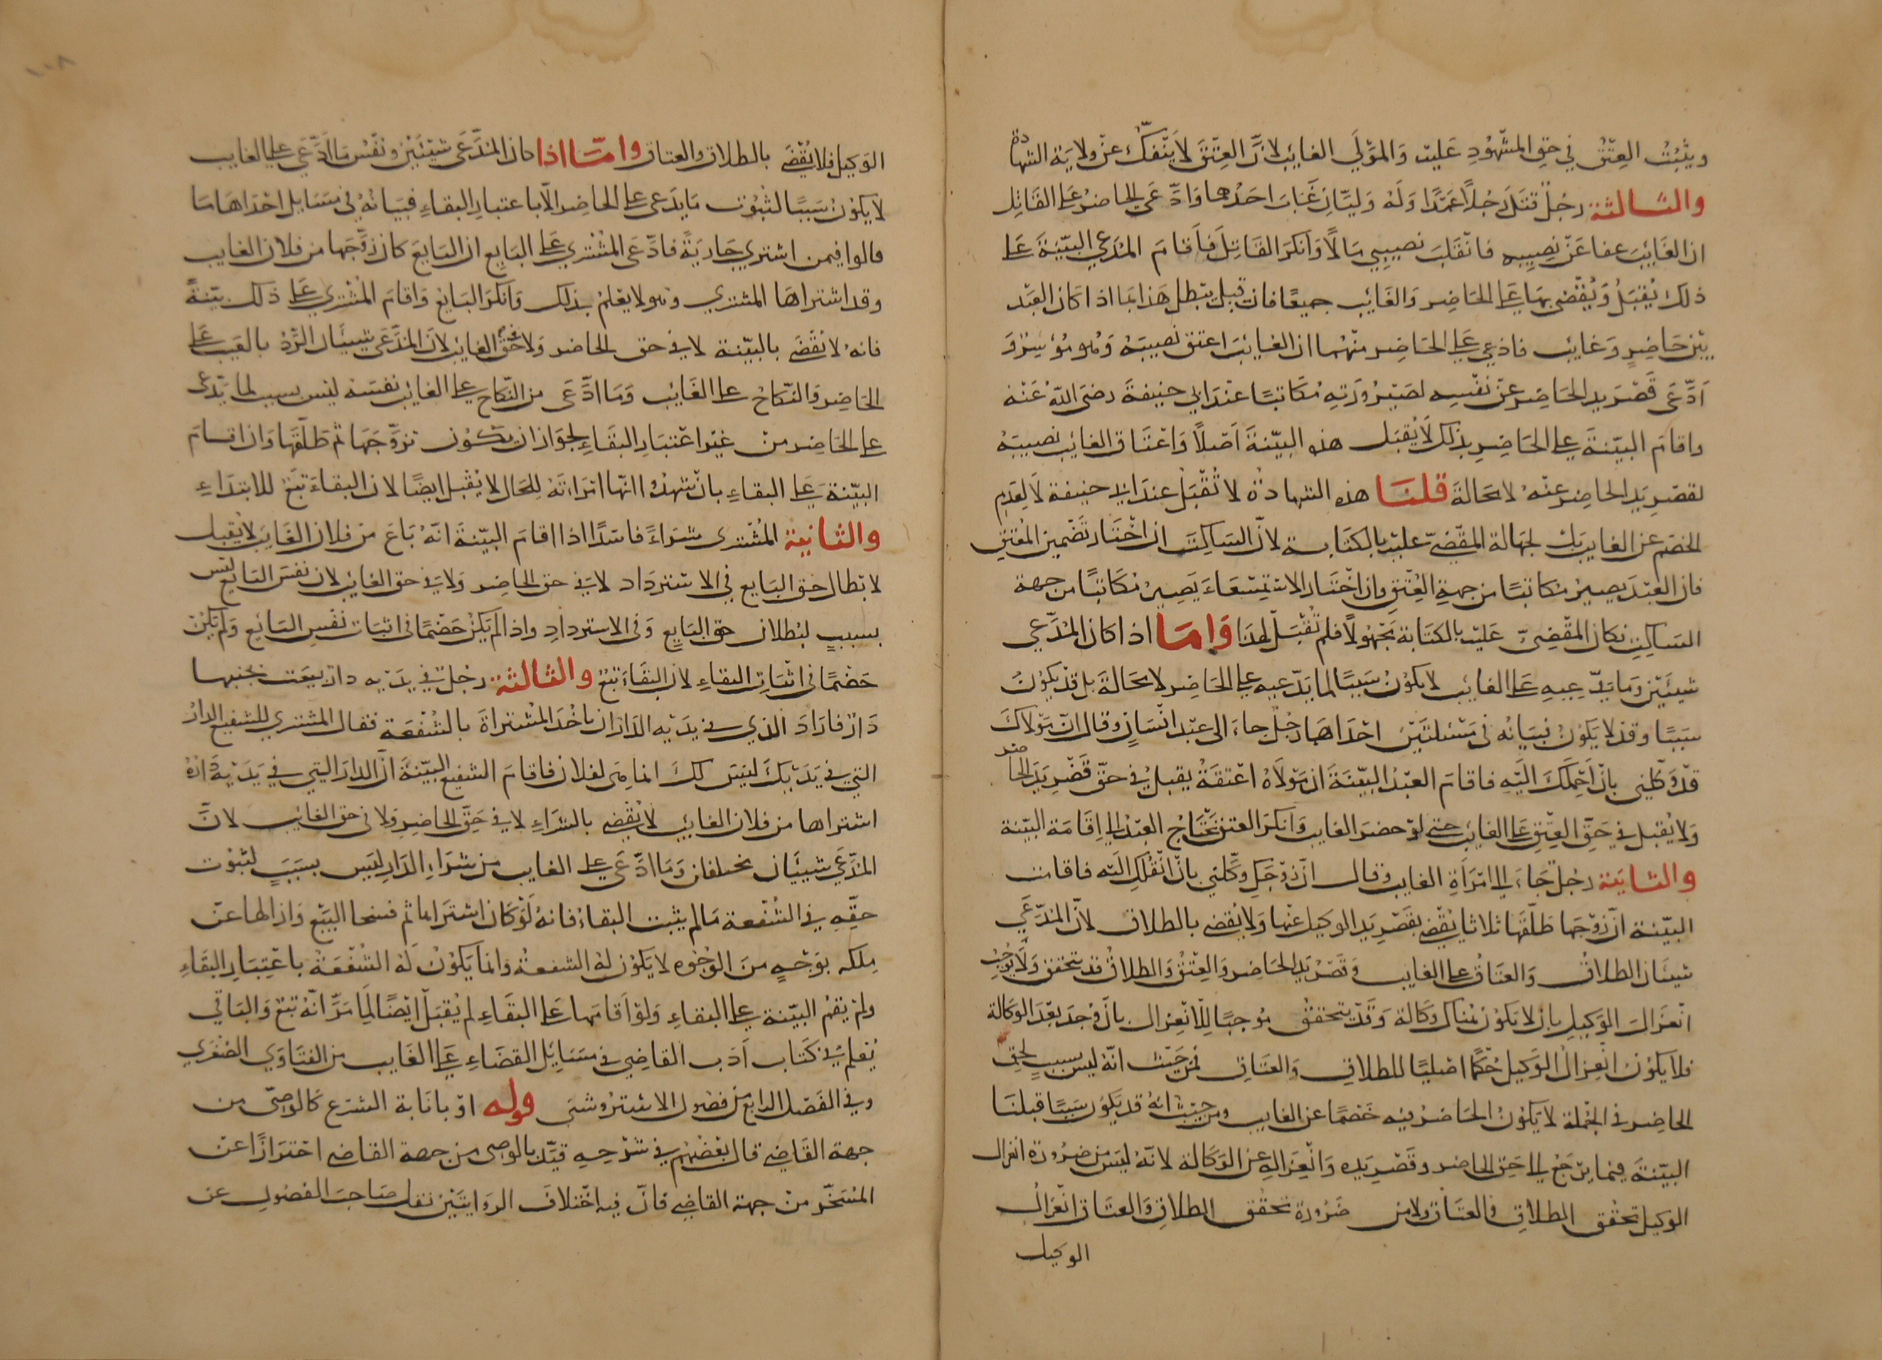 ويثبت العتق في حق المشهود عليه والمولى الغائب لان العتق لا ينفك عن ولاية الشهادة
والثالثة رجل قتل رجلا عمدا وله وليان غاب احدهما وادعى الحاضر على القاتل
ان الغائب عفا عن نصيبه فانقلب نصيبي مالا وانكر القاتل فاقام المدعي البينة على
ذلك يقبل ويقضى بها على الحاضر والغائب جميعا فان قيل يبطل هذا بما اذا كان العبد
بين حاضر وغائب فادعى على الحاضر منهما ان الغائب اعتق نصيبه وهو موسر و
ادعى قصر يد الحاضر عن نفسه لصيرورته مكاتبا عند ابي حنيفة رضى الله عنه
واقام البينة على الحاضر بذلك لا يقبل هذه البينة اصلا واعتاق الغائب نصيبه
لقصر يد الحاضر عنه لا محالة قلنا هذه الشهادة لا تقبل عند ابي حنيفة لا لعدم
الخصم عن الغايب بل لجهالة المقضي عليه بالكتابة لان الساكت ان اختار تضمين المعتق
فان العبد يصير مكاتبا من جهة المعتق وان اختار الاستسعاء يصير مكاتبا من جهة
الساكت فكان المقضي عليه بالكتابة مجهولا فلم تقبل لهذا واما اذا كان المدعي
شيئين وما يدعيه على الغائب لا يكون سببا لما يدعيه على الحاضر لا محالة بل قد يكون
سببا وقد لا يكون فبيانه في مسئلتين احداهما رجل جاء الى عبد انسان وقال ان مولاك
قد وكلني بان احملك اليه فاقام العبد البينة ان مولاه اعتقه يقبل في حق قصر يد الحاضر
ولا يقبل في حق العتق على الغايب حتى لو حضر الغايب وانكر العتق يحتاج العبد الى اقامة البينة
والثانية رجل جاء الى امرأة الغايب وقال ان زوجك وكلني بان انقلك اليه فاقامت
البينة ان زوجها طلقها ثلاثا يقضى بقصر يد الوكيل عنها ولا يقضى بالطلاق لان المدعي
شيئان الطلاق والعتاق على الغايب وقصر يد الحاضر والعتق والطلاق قد تتحقق ولا يوجب
انعزال الوكيل بان لا يكون هناك وكالة وقد يتحقق موجبا للانعزال بان وجد بعد الوكالة
فلا يكون انعزال الوكيل حكما اصليا للطلاق والعتاق فمن حيث انه ليس بسبب لحق
الحاضر في الجملة لا يكون الحاضر فيه خصما عن الغايب ومن حيث انه قد يكون سببا قبلنا
البينة فيما يرجع الى حق الحاضر وقصر يده وانعزاله عن الوكالة لانه ليس من ضرورة انعزال
الوكيل تحقق الطلاق والعتاق ولا من ضرورة تحقق الطلاق والعتاق انعزال
الوكيل
الوكيل فلا يقضى بالطلاق والعتاق واما اذا كان المدعى شيئين ونفس ما ادعى على الغايب
لا يكون سببا لثبوت ما يدعى على الحاضر الا باعتبار البقاء فبيانه في مسايل احداها ما
قالوا فيمن اشترى جارية فادعى المشتري على البايع ان البايع كان زوجها من فلان الغايب
وقد اشتراها المشتري وهو لا يعلم بذلك وانكر البايع واقام المشتري على ذلك بينة
فانه لا يقضى بالبينة لا في حق الحاضر ولا في حق الغائب لان المدعى شيئان الرد بالعيب على
الحاضر والنكاح على الغائب وما ادعى من النكاح على الغائب نفسه ليس بسبب لما يدعى
على الحاضر من غير اعتبار البقاء لجواز ان يكون تزوجها ثم طلقها وان اقام
البينة على البقاء بان شهدوا انها امرأته للحال لا يقبل ايضا لان البقاء تبع للابتداء
والثانية المشترى شراء فاسدا اذا اقام البينة انه باع من فلان الغايب لا يقبل
لابطال حق البايع في الاسترداد لا في حق الحاضر ولا في حق الغائب لان نفس البايع ليس
بسبب لبطلان حق البايع وفي الاسترداد واذا لم يكن خصما في اثبات نفس البايع ولم يكن
خصما في اثبات البقاء لان البقاء تبع والثالثة رجل في يديه دار بيعت بجنبها
دار فاراد الذي في يديه الدار ان ياخذ المشتراة بالشفعة فقال المشتري للشفيع الدار
التي في يديك ليس لك انما هي لفلان فاقام الشفيع البينة ان الدار التي في يديه داره
اشتراها من فلان الغايب لا يقضى بالشراء لا في حق الحاضر ولا في حق الغايب لان
المدعي شيئان مختلفان وما ادعى على الغايب من شراء الدار ليس بسبب لثبوت
حقه في الشفعة ما لم يثبت البقاء فانه لو كان اشتراها ثم فسخا البيع وازالها عن
ملكه بوجه من الوجوه لا يكون له الشفعة وانما يكون له الشفعة باعتبار البقاء
ولم يقم البينة على البقاء ولو اقامها على البقاء لم يقبل ايضا لما مر انه تبع والباقي
يعلم في كتاب ادب القاضي في مسايل القضاء على الغايب من الفتاوي الصغرى
وفي الفصل الرابع من فصول الاستروشنى قوله او بانابة الشرع كالوصي من
جهة القاضي قال بعضهم في شرحه قيد بالوصي من جهة القاضي احترازا عن
المسخر من جهة القاضي فان فيه اختلاف الروايتين نقل صاحب الفصول عن
١٠٨